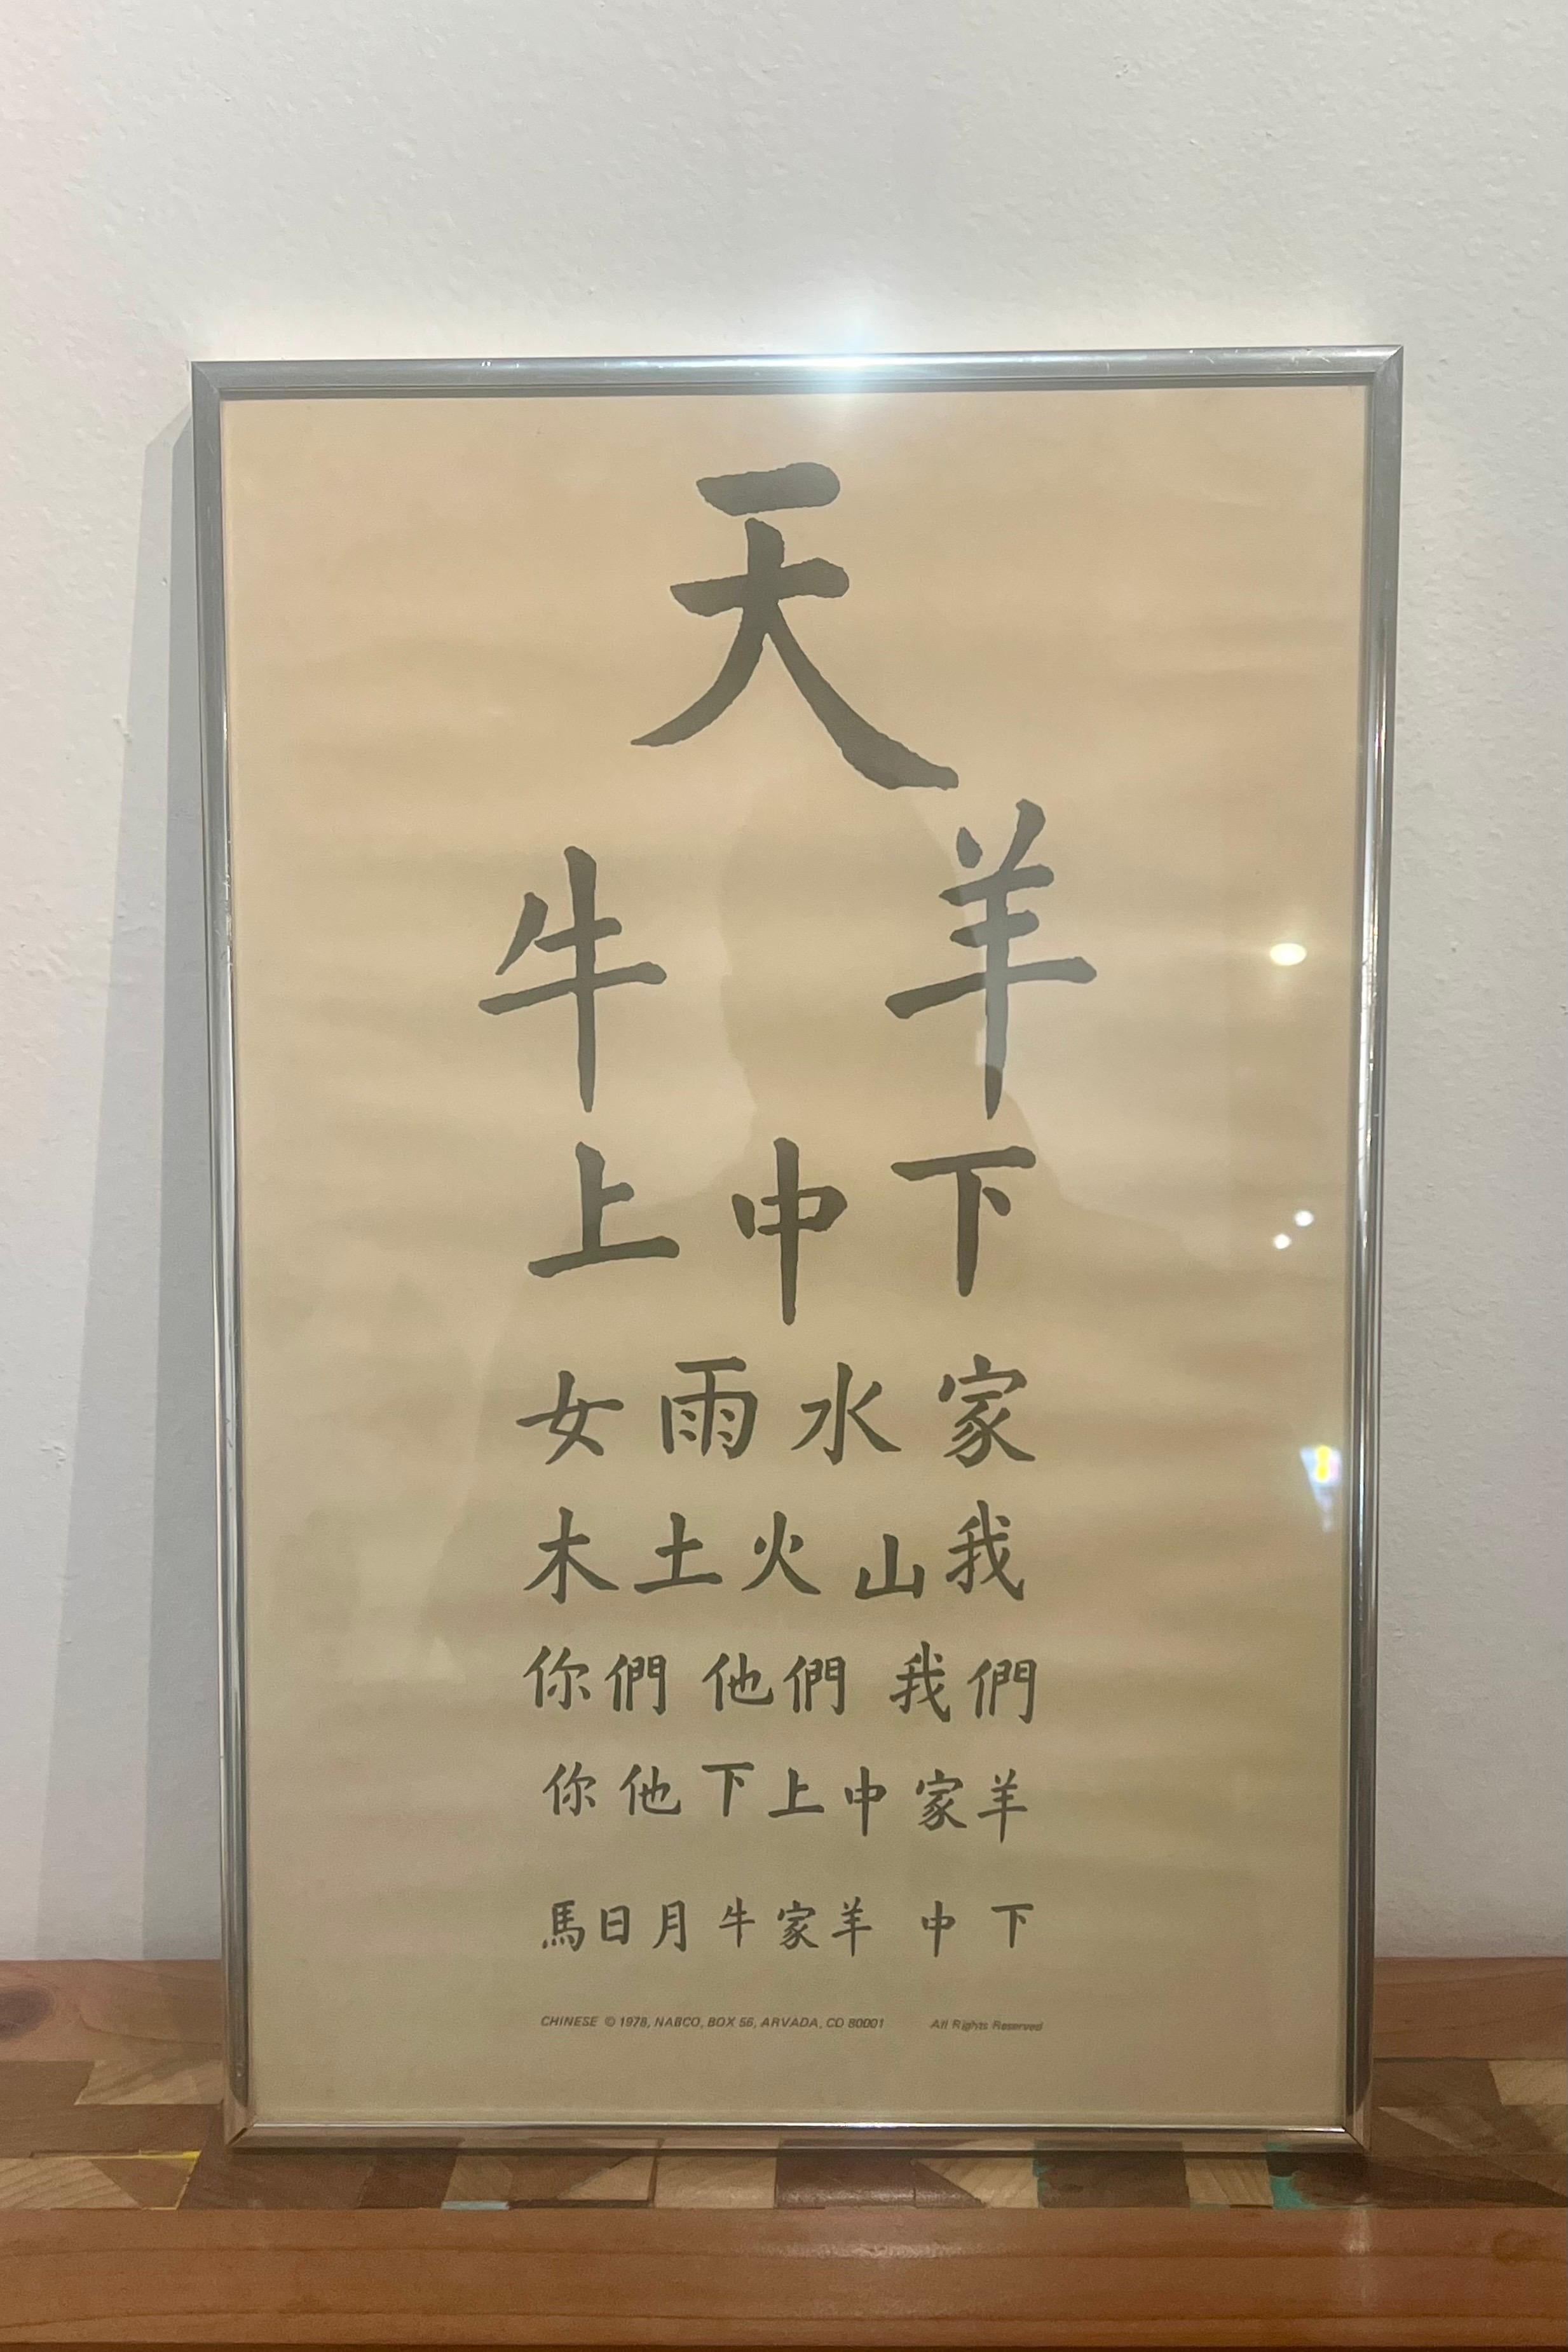 天
牛 羊
上 中 下
女 雨 水 家
木 土 火 山 我
你們 他們 我們
你 他 下 上 中 家 羊
馬 日 月 牛 家 羊 中 下
CHINESE © 1978, NABCO, BOX 56, ARVADA, CO 80001 All Rights Reserved